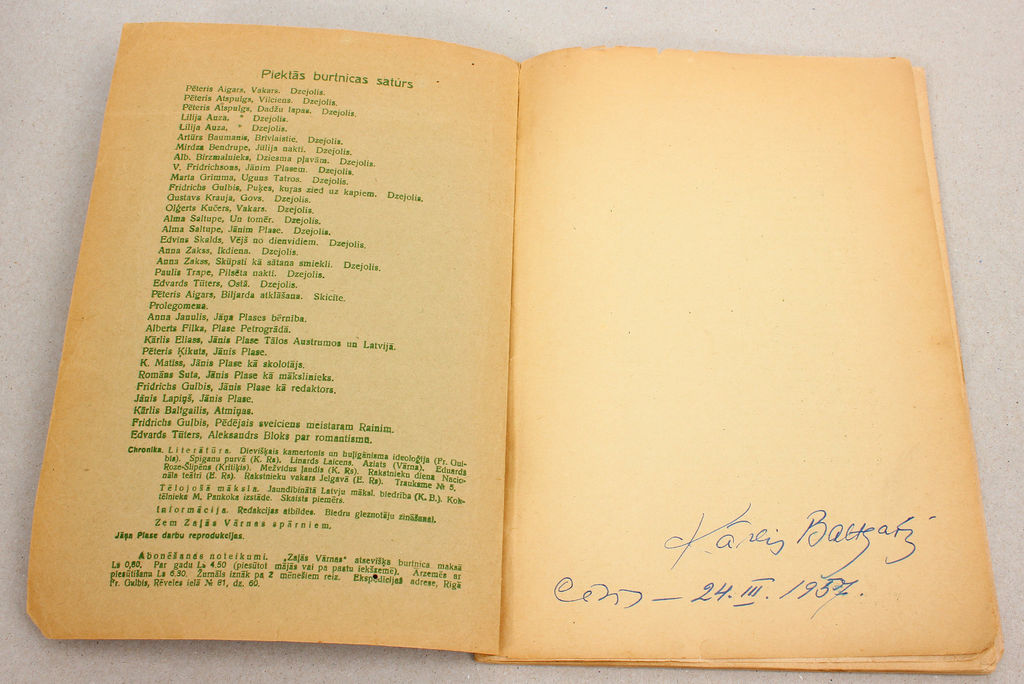 Piektās burtnicas satūrs
Pēteris Aigars, Vakars. Dzejolis.
Pēteris Atspulgs, Vilciens. Dzejolis.
Pēteris Atspulgs, Dadžu lapas. Dzejolis.
Lilija Auza, * Dzejolis.
Lilija Auza, * Dzejolis.
Artūrs Baumanis, Brīvlaistie. Dzejolis.
Mirdza Bendrupe, Jūlija naktī. Dzejolis.
Alb. Birzmalnieks, Dziesma pļavām. Dzejolis.
V. Fridrichsons, Jānim Plasem. Dzejolis.
Marta Grimma, Uguns Tatros. Dzejolis.
Fridrichs Gulbis, Puķes, kuŗas zied uz kapiem. Dzejolis.
Gustavs Krauja, Govs. Dzejolis.
Oļģerts Kučers, Vakars. Dzejolis.
Alma Saltupe, Un tomēr. Dzejolis.
Alma Saltupe, Jānim Plase. Dzejolis.
Edvins Skalds, Vējš no dienvidiem. Dzejolis.
Anna Zakss, Ikdiena. Dzejolis.
Anna Zakss, Skūpsti kā sātana smiekli. Dzejolis.
Paulis Trape, Pilsēta naktī. Dzejolis.
Edvards Tūters, Ostā. Dzejolis.
Pēteris Aigars, Biljarda atklāšana. Skicīte.
Prolegomena.
Anna Janulis, Jāņa Plases bērnība.
Alberts Filka, Plase Petrogrādā.
Kārlis Eliass, Jānis Plase Tālos Austrumos un Latvijā.
Pēteris Ķikuts, Jānis Plase.
K. Matiss, Jānis Plase kā skolotājs.
Romāns Suta, Jānis Plase kā mākslinieks.
Fridrichs Gulbis, Jānis Plase kā redaktors.
Jānis Lapiņš, Jānis Plase.
Kārlis Baltgailis, Atmiņas.
Fridrichs Gulbis, Pēdējais sveiciens meistaram Rainim.
Edvards Tūters, Aleksandrs Bloks par romantismu.
Chronika. Literātūra. Dievišķais kamertonis un huļigānisma ideoloģija (Fr. Gul-
bis). Spīganu purvā (K. Rs). Linards Laicens. Aziats (Vārna). Eduards
Roze-Slipēns (Kritiķis). Mežvidus ļaudis (K. Rs). Rakstnieku diena Nacio-
nāla teātrī (E. Rs). Rakstnieku vakars Jelgavā (E. Rs). Trauksme № 5.
Tēlojošā māksla. Jaundibinātā Latvju māksl. biedrība (K. B.). Kok-
tēlnieka M. Pankoka izstāde. Skaists piemērs.
Informācija. Redakcijas atbildes. Biedru gleznotāju zināšanai.
Zem Zaļās Vārnas spārniem.
Jāņa Plase darbu reprodukcijas.
Abonēšanas noteikumi. „Zaļās Vārnas“ atsevišķa burtnica maksā
Ls 0,80. Par gadu Ls 4.50 (piesūtot mājās vai pa pastu iekšzemē). Ārzemēs ar
piesūtīšanu Ls 6.30. Žurnāls iznāk pa 2 mēnešiem reiz. Ekspedīcijas adrese, Rīgā
Fr. Gulbis, Rēveles ielā № 81, dz. 60.
Kārlis Baltgailis
Cēsis – 24. III. 1957.